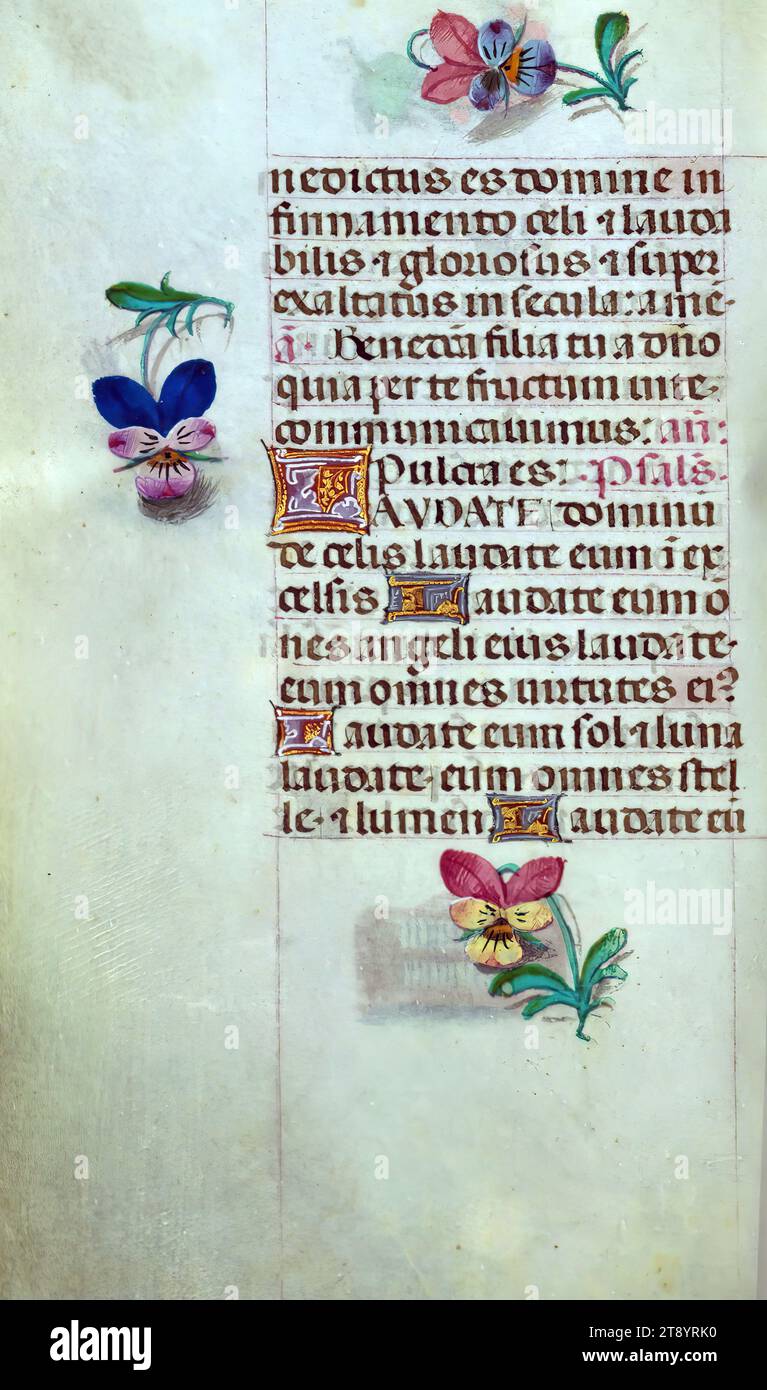 nedictus es domine in
firmamento celi ⁊ lauda
bilis ⁊ gloriosus ⁊ super
exaltatus in secula: amē·
ā· Benedcā filia tu a dño
quia per te fructum uite
communicauimus: añ:
Pulcra es: Psalš·
LAVDATE dominū
de celis laudate eum ī ex
celsis Laudate eum ō
nes angeli eius laudate
eum om̄es uirtutes ei⁹
Laudate eum sol ⁊ luna
laudate eum omnes stel
le ⁊ lumen Laudate eū
alamy
alamy
alamy
alamy
Image ID: 2T8YRK0
www.alamy.com